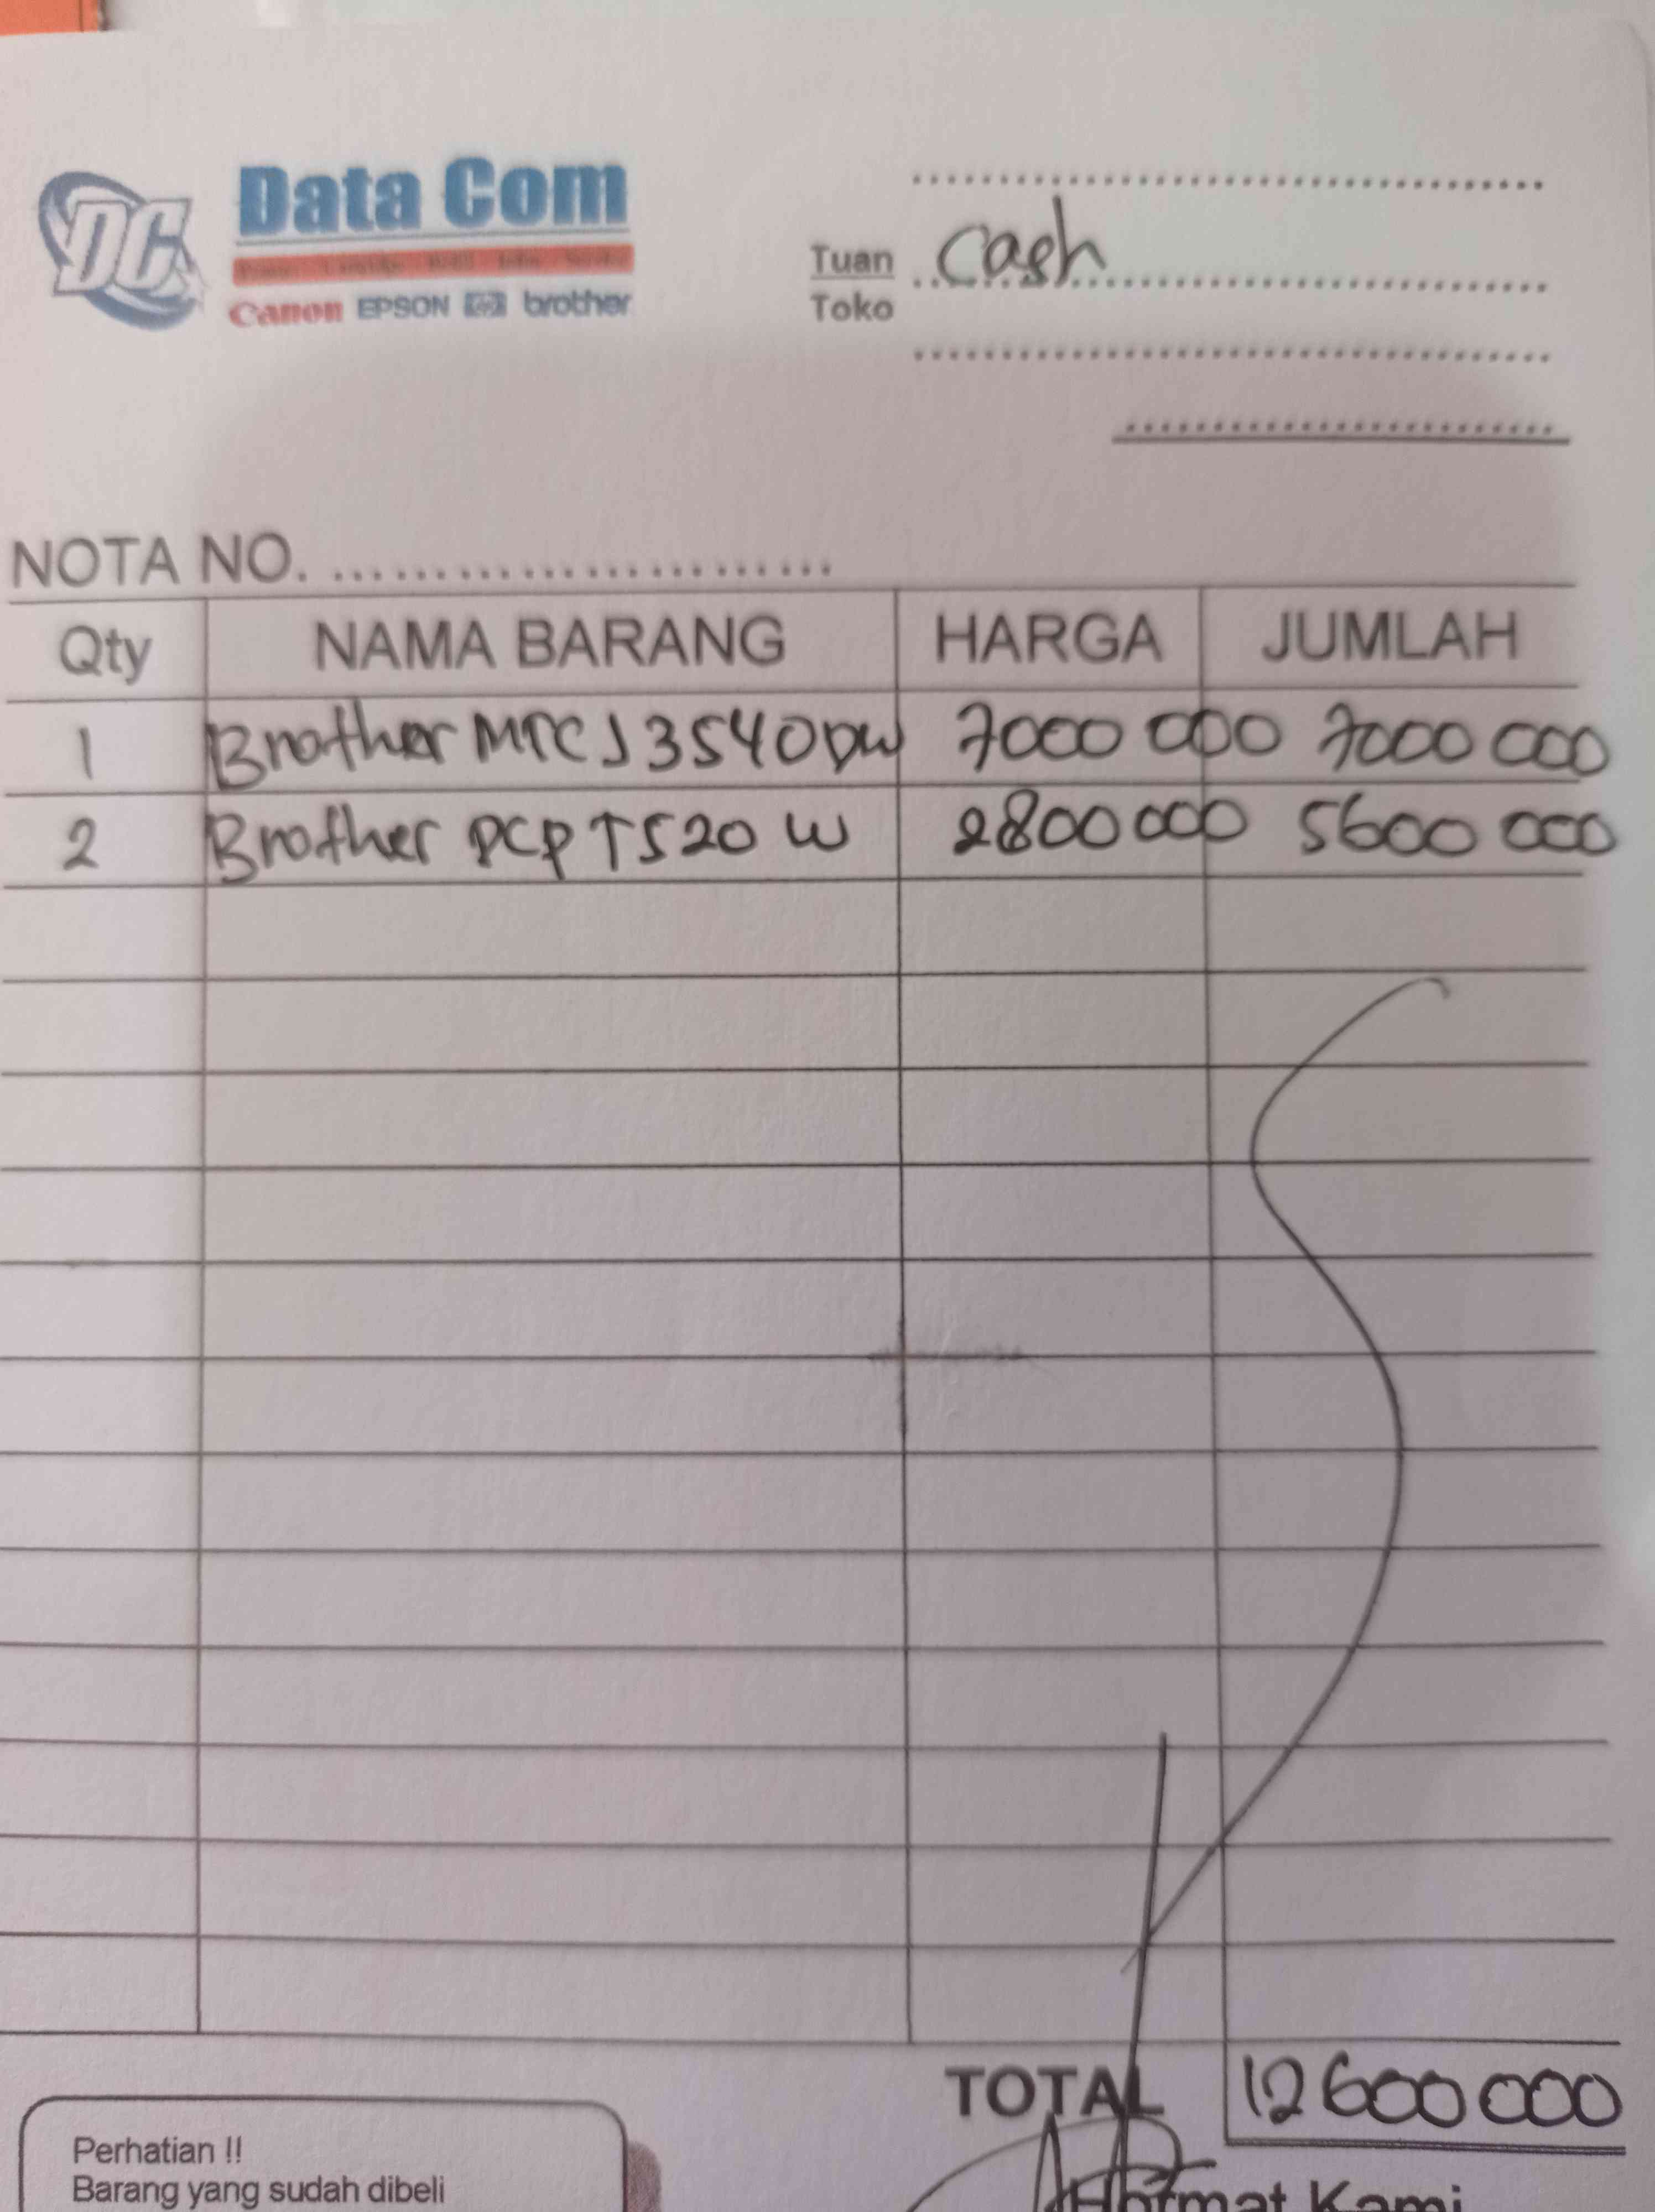 DC
Data Com
Canon EPSON hp brother
Tuan cash
Toko
NOTA NO.
Qty NAMA BARANG HARGA JUMLAH
1 Brother MFC J3540DW 7000 000 7000 000
2 Brother DCP T520 W 2800 000 5600 000
TOTAL 12600 000
Perhatian !!
Barang yang sudah dibeli
Hormat Kami